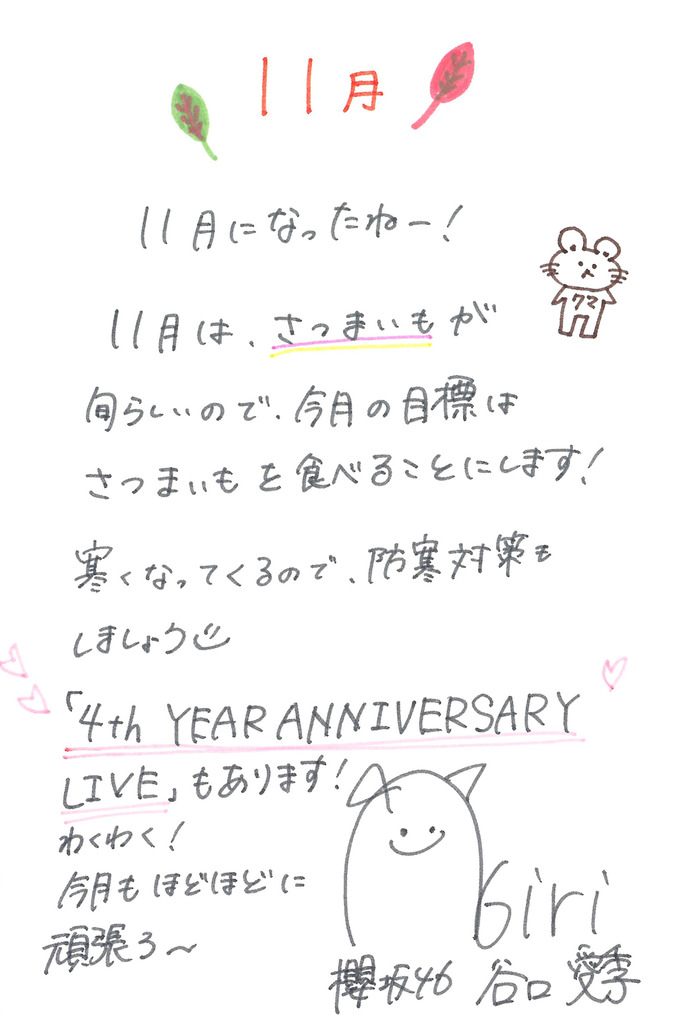 11月
11月になったねー!
クマ
11月は、さつまいもが
旬らしいので、今月の目標は
さつまいもを食べることにします!
寒くなってくるので、防寒対策も
しましょう
「4th YEAR ANNIVERSARY
LIVE」もあります!
わくわく!
今月もほどほどに
頑張ろ〜
Giri
櫻坂46 谷口愛季